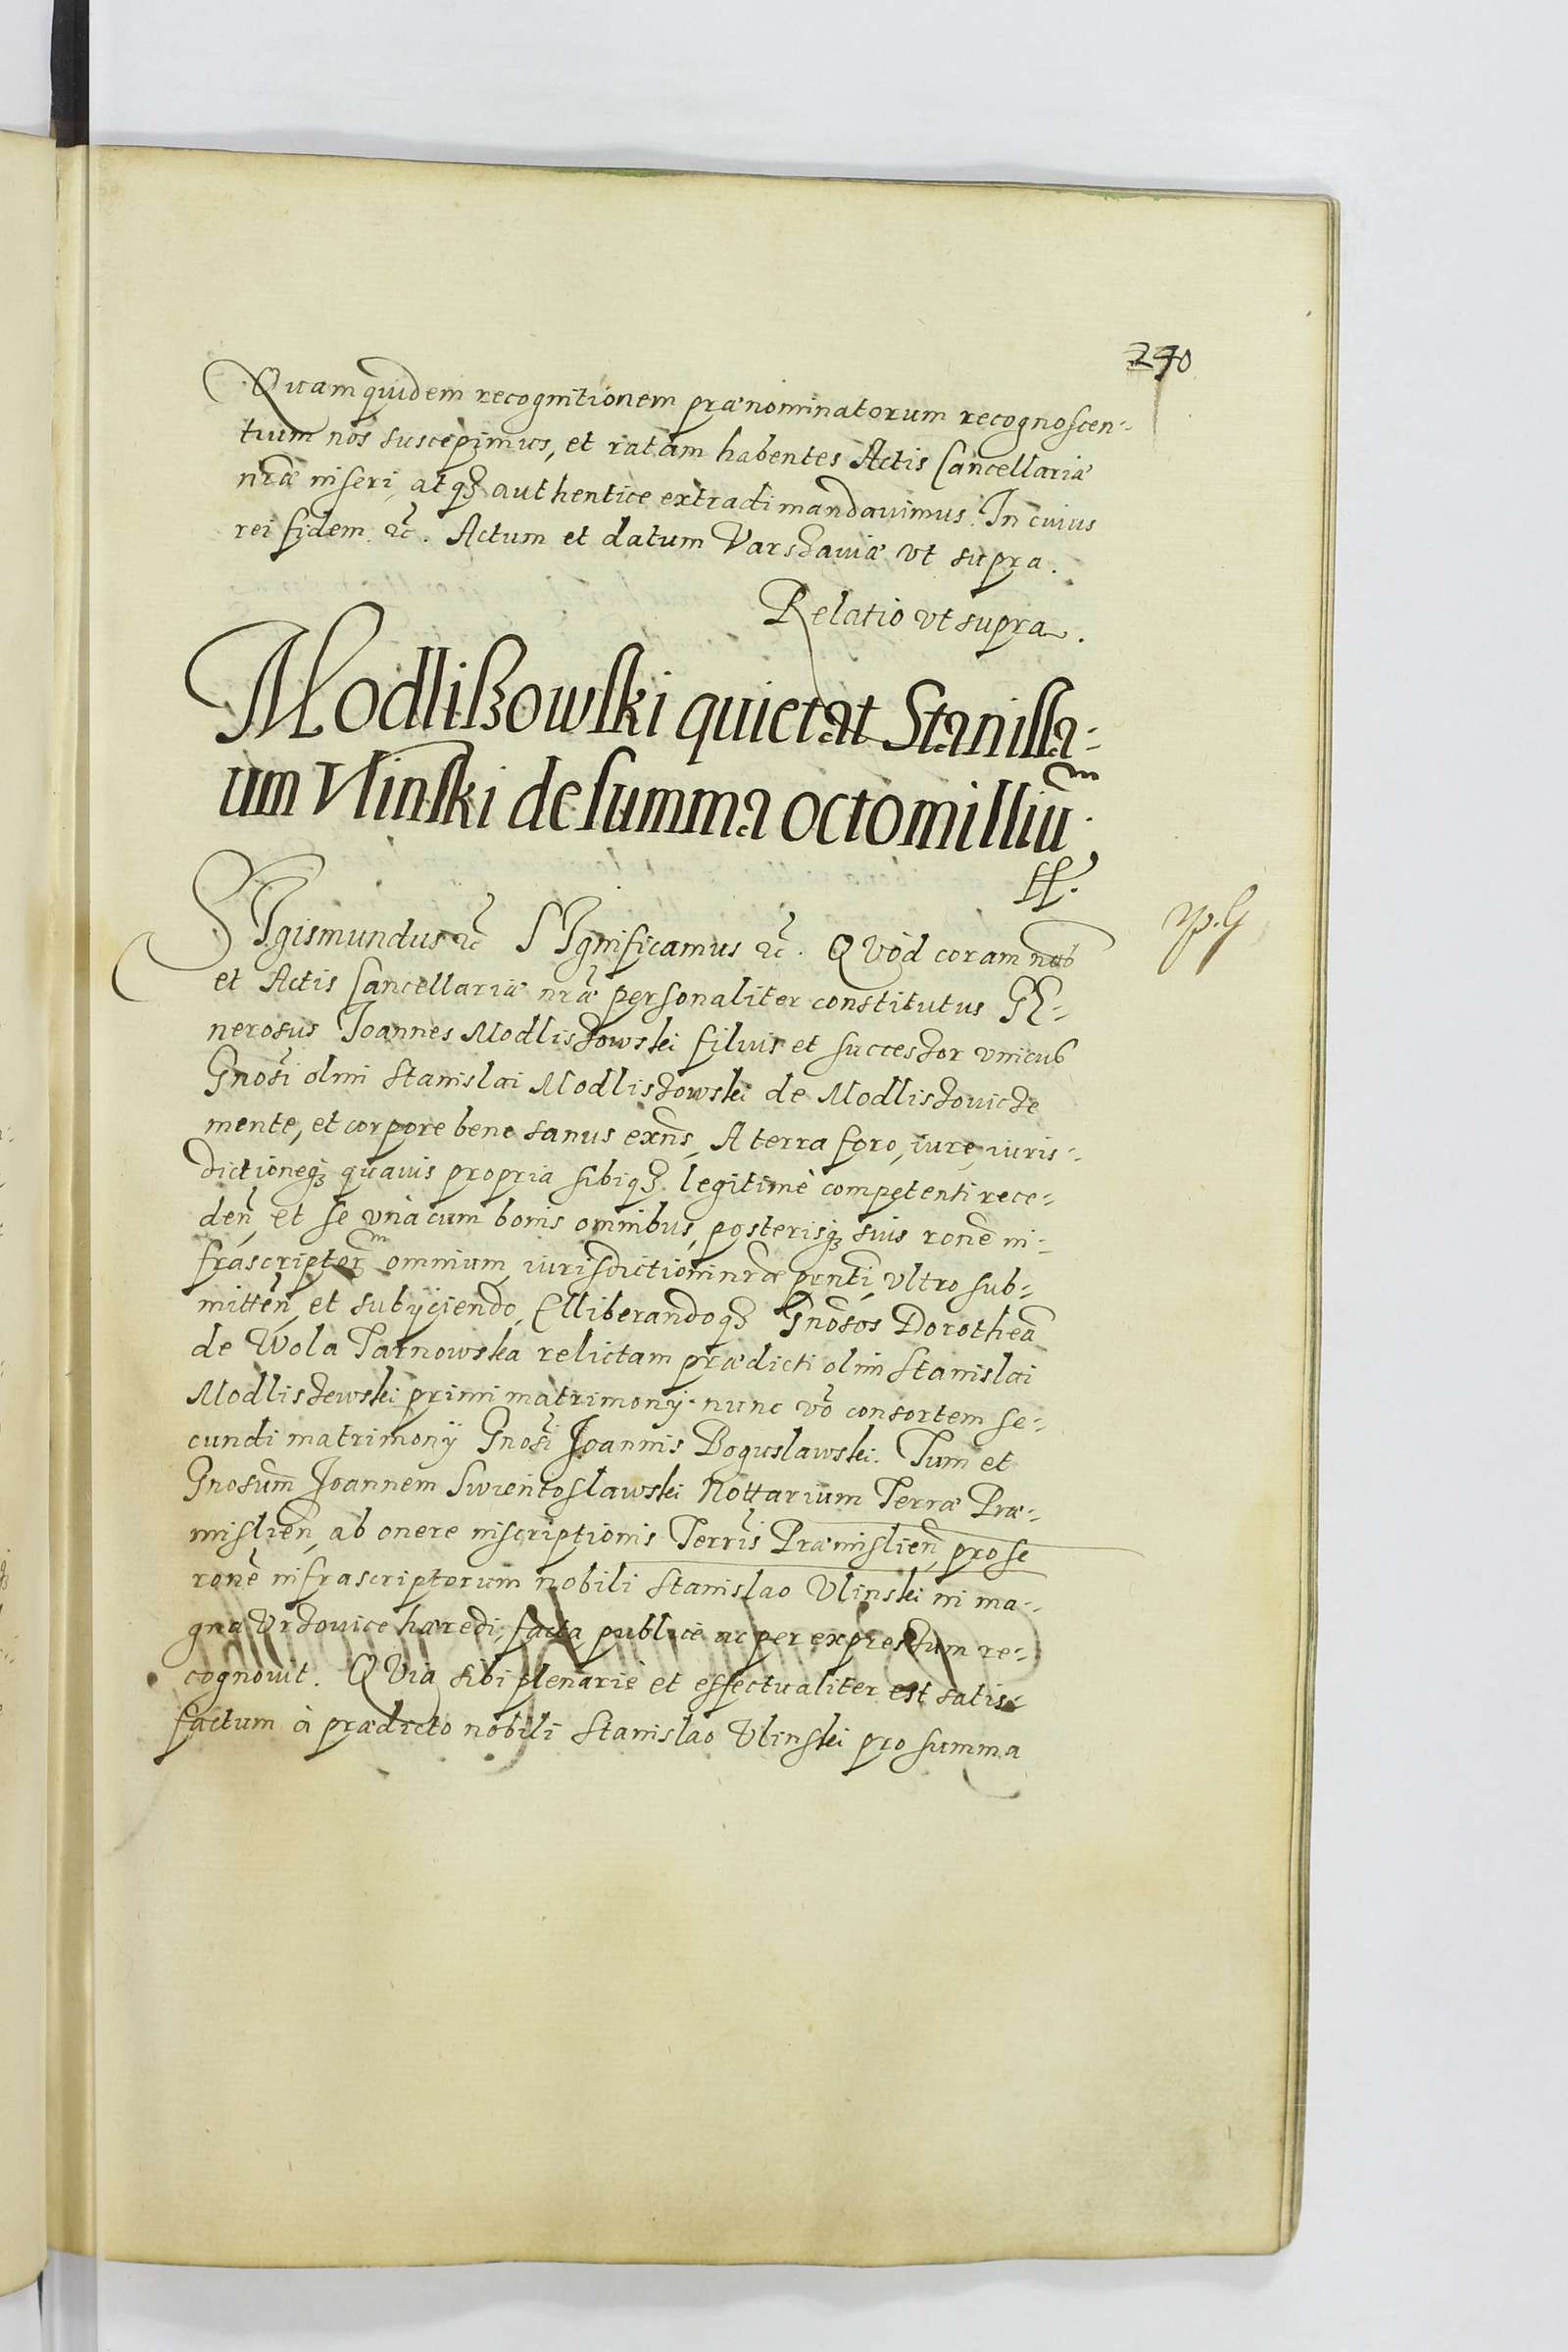 290
Quam quidem recognitionem prænominatorum recognoscen-
tium nos suscepimus, et ratam habentes Actis Cancellariæ
nr̃æ inseri, atq₃ authentice extradi mandauimus. In cuius
rei fidem ꝛc̃. Actum et datum Varszauiæ vt supra.
Relatio vt supra.
Modlißowski quietat Stanisla-
um Vlinski de summa octo milliũ
ff.
SIgismundus ꝛc̃ SIgnificamus ꝛc̃. QVod coram nob
et Actis Cancellariæ nr̃æ personaliter constitutus GE-
nerosus Joannes Modliszowski filius et successor vnicus
Gnosi olim Stanislai Modliszowski de Modliszouicze
mente, et corpore bene sanus exñs, A terra foro, iure, iuris-
dictioneq₃ quauis propria sibiq₃ legitimè competenti rece-
deñ, et se vnà cum bonis omnibus, posterisq₃ suis ronẽ in-
frascriptorm omnium, iurisdictioni nr̃æ pñti, vltro sub-
mitteñ, et subijciendo, Elliberandoq₃ Gnõsos Dorotheã
de Wola Tarnowska relictam prædicti olim Stanislai
Modliszewski primi matrimonÿ. nunc võ consortem se-
cundi matrimonÿ Gnosi Joannis Boguslawski. Tum et
Gnosum Joannem Swientoslawski Nottarium Terræ Præ-
mislieñ, ab onere inscriptionis Terrĩs Præmislieñ, pro se
ronẽ infrascriptorum nobili Stanislao Vlinski in ma-
gna Vrzouice hæredi, facta publicè ac per expressum re-
cognouit. QVia sibi plenariè et effectualiter est satis-
factum à prædicto nobili Stanislao Vlinski pro summa